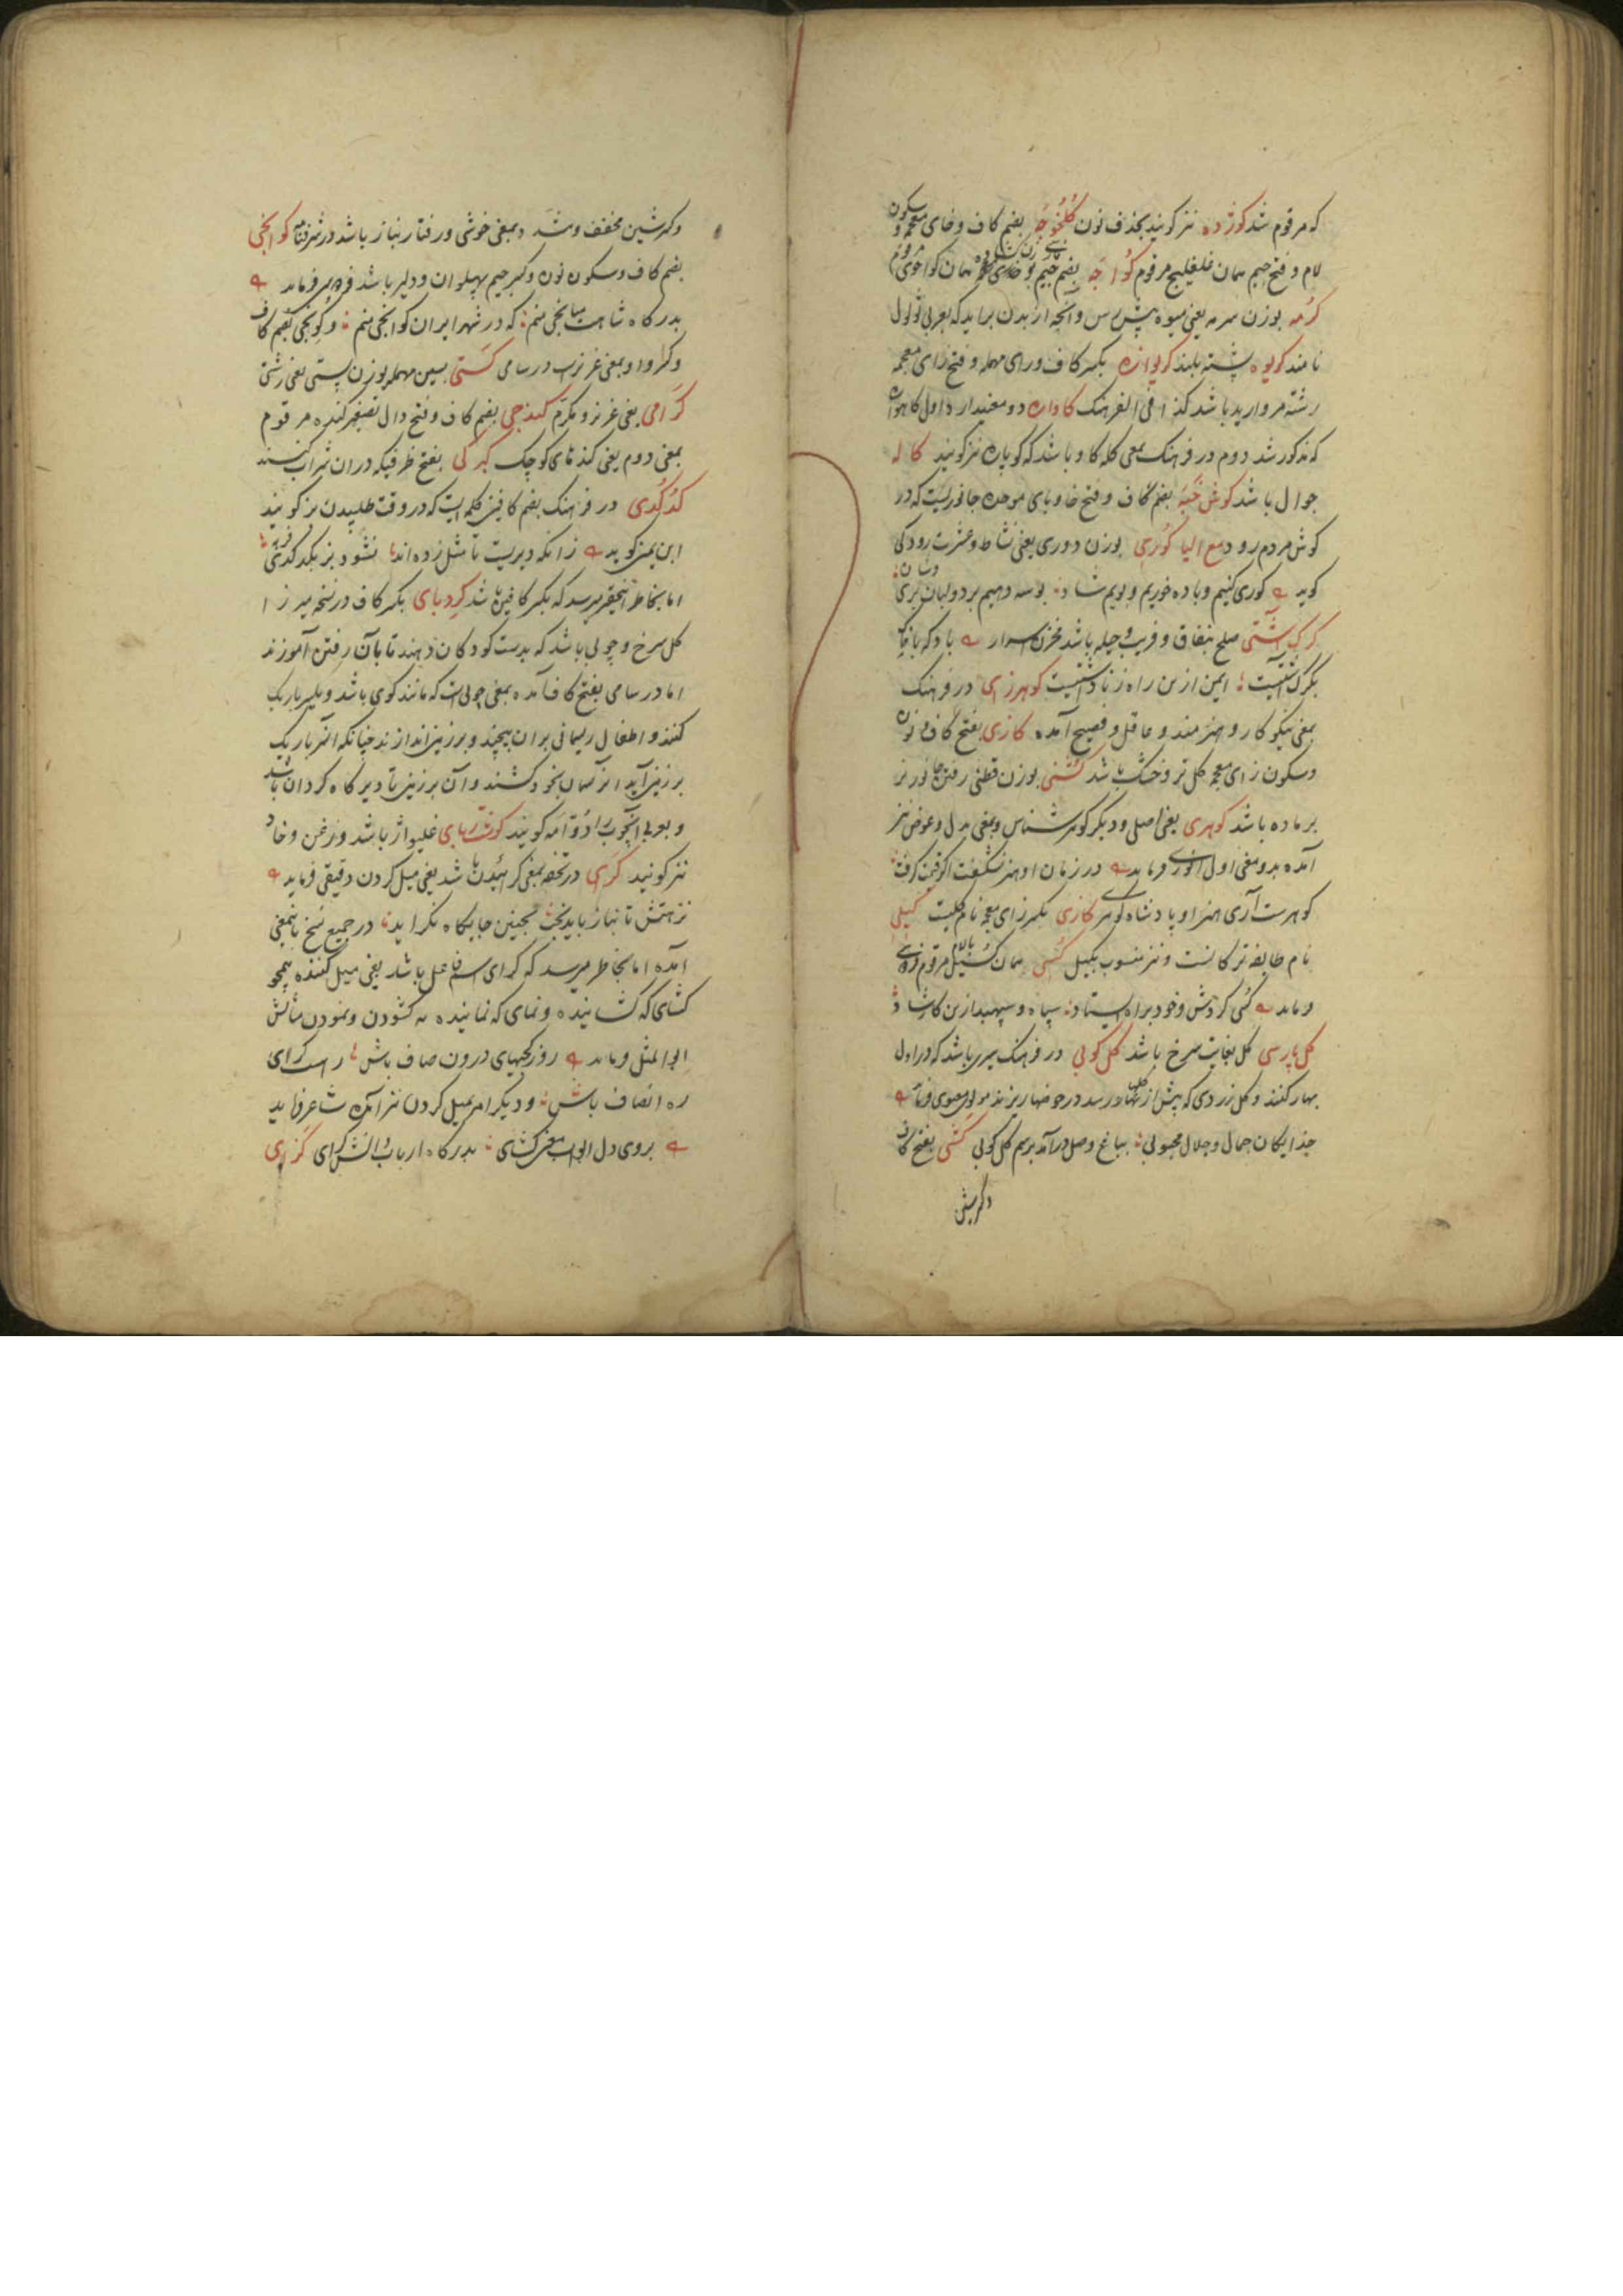 که مرقوم شد کوژده نیز کویند بحذف نون کلخوجه بضم کاف و خای معجمه و سکون
لام و فتح جیم همان غلغلیج مرقوم کواجه بضم جیم همان کواجوی مرقوم
کرمه بوزن سرمه یعنی میوه پیش رس و آنچه از بدن براید که بعربی ثولول
نامند کویوه پشته بلند کریوازه بکسر کاف و رای مهمله و فتح زای معجمه
رشته مروارید باشد کذا فی الفرهنک کاواره دو معنی دارد اول کاهواره
که مذکور شد دوم در فرهنک بمعنی کله کاو باشد که کوباره نیز کویند کاله
جوال باشد کوش خبه بضم کاف و فتح خا و بای موحده جانوریست که در
کوش مردم رود مع الیا کوری بوزن دوری یعنی نشاط و عشرت رودکی
کوید کوری کنیم و باده خوریم و بویم شاد بوسه دهیم بر دو لبان پری وشان
کرک آشتی صلح بنفاق و فریب و حیله باشد مخزن اسرار باد که با خاک
بکرک آشتیست ایمن ازین راه ز ناداشتیست کوهرزای در فرهنک
بمعنی نیکوکار و هنرمند و عاقل و فصیح آمده کازی بفتح کاف و نون
و سکون زای معجمه کل تر و خشک باشد کشنی بوزن قطنی رفتن جانور نر
بر ماده باشد کوهری یعنی اصلی و دیکر کوهرشناس و بمعنی بدل و عوض نیز
آمده بدو معنی اول انوری فرماید در زمان او هنر نشکفت اکر قیمت کرفت
کوهرست آری هنر او پادشاه کوهری کازی بکسر زای معجمه نام کلیست کیلی
نام طایفه ترکانست و نیز منسوب بکیل کسی همان کسیل مرقوم فردوسی
فرماید کسی کردش و خود براه ایستاد سپاه و سپهبد ازین کار شاد
کل پارسی کل بغایت سرخ باشد کل کوبی در فرهنک سیری باشد که در اول
بهار کنند و کل زردی که پیش از کلها در رسد در حوضها ریزند مولوی معنوی فرماید
خدایکان جمال و جلال محبوبی بباغ وصل درآمد برسم کل کوبی کشی بفتح کاف
و کسر شین
و کسر شین مخفف و مشدد بمعنی خوشی و رفتار بناز باشد در شرفنامه کوانجی
بضم کاف و سکون نون و کسر جیم پهلوان و دلیر باشد فرماید
بدرکاه شاهت میانجی منم که در شهر ایران کوانجی منم و کونجی بضم کاف
و کسر واو بمعنی عزیزست در سامی کستی بسین مهمله بوزن پستی یعنی زشتی
کرامی یعنی عزیز و مکرم کندجی بضم کاف و فتح دال تصغیر کنده مرقوم
بمعنی دوم یعنی کندنای کوچک کبرکی بفتح ظرفیکه در ان شراب کنند
کدکدی در فرهنک بضم کافین کلمه ایست که در وقت طلبیدن بز کویند
ابن یمین کوید زانکه دیریست تا مثل زده اند نشود بز بکدکدی فربه
اما بخاطر فقیر میرسد که بکسر کافین باشد کردبای بکسر کاف در نسخه میرزا
کل سرخ و چوبی باشد که بدست کودکان دهند تا بآن رفتن آموزند
اما در سامی بفتح کاف آمده بمعنی چوبی است که مانند کوی باشد و سر باریک
کنند و اطفال ریسمانی بر ان پیچند و بر زمین اندازند چنانکه از سر باریک
بر زمین آید انرا بریسمان بخود کشند و آن بر زمین تا دیرکاه کردان باشد
و بعربی آنچوب را دوّامه کویند کوشت ربای غلیواژ باشد و زغن و خاد
نیز کویند کرای در تحفه بمعنی کرائیدن باشد یعنی میل کردن دقیقی فرماید
نزهتش تا نیاز باید بخت بچنین جایکاه نکراید در جمیع نسخ باینمعنی
آمده اما بخاطر میرسد که کرای اسم فاعل باشد یعنی میل کننده همچو
کشای که کشاینده و نمای که نماینده نه کشودن و نمودن مثالش
ابوالمثل فرماید روز کجیهای درون صاف باش راست کرای
ره انصاف باش و دیکر امر بمیل کردن نیز آمده شاعر فرماید
بروی دل ابواب معنی کشای بدرکاه ارباب دانش کرای کزای